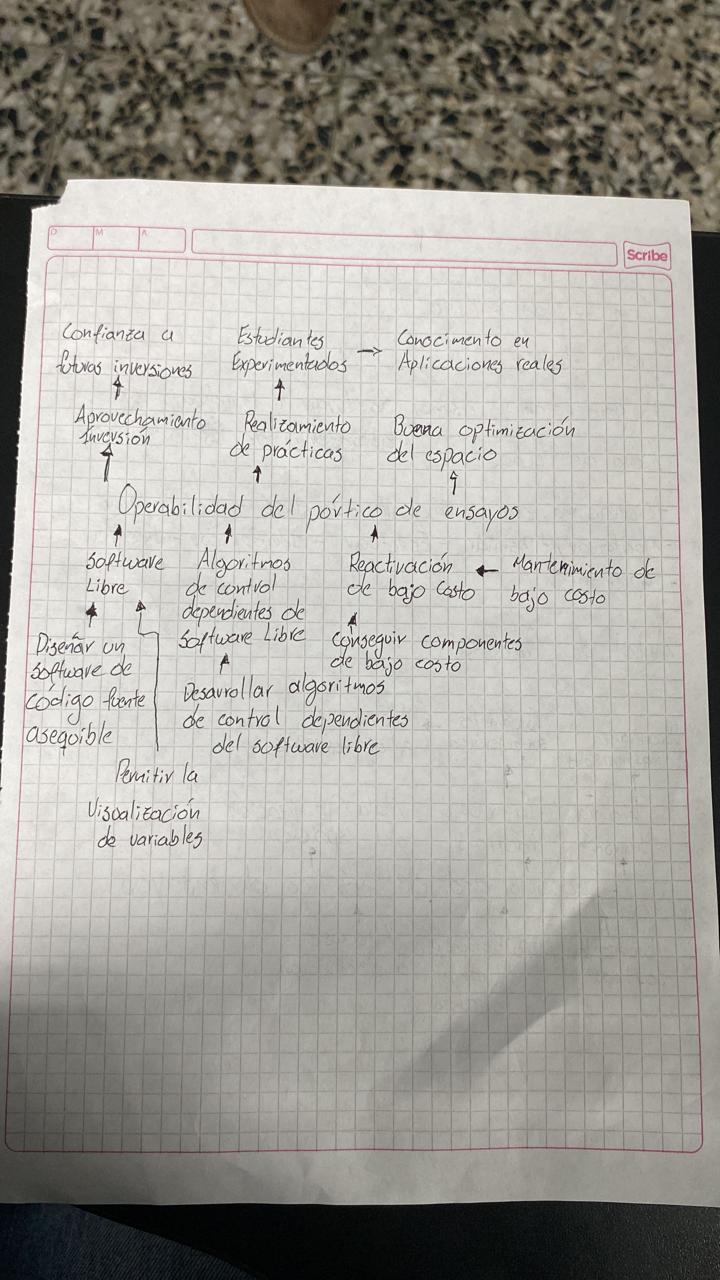 D M A
Scribe
Confianza a
futuras inversiones
Estudiantes
Experimentados
Conocimento en
Aplicaciones reales
Aprovechamiento
inversión
Realizamiento
de prácticas
Buena optimización
del espacio
Operabilidad del pórtico de ensayos
Software
Libre
Algoritmos
de control
dependientes de
Software Libre
Reactivación
de bajo costo
Mantenimiento de
bajo costo
Diseñar un
software de
código fuente
aseqoible
Conseguir componentes
de bajo costo
Desarrollar algoritmos
de control dependientes
del software libre
Permitir la
Visualización
de variables